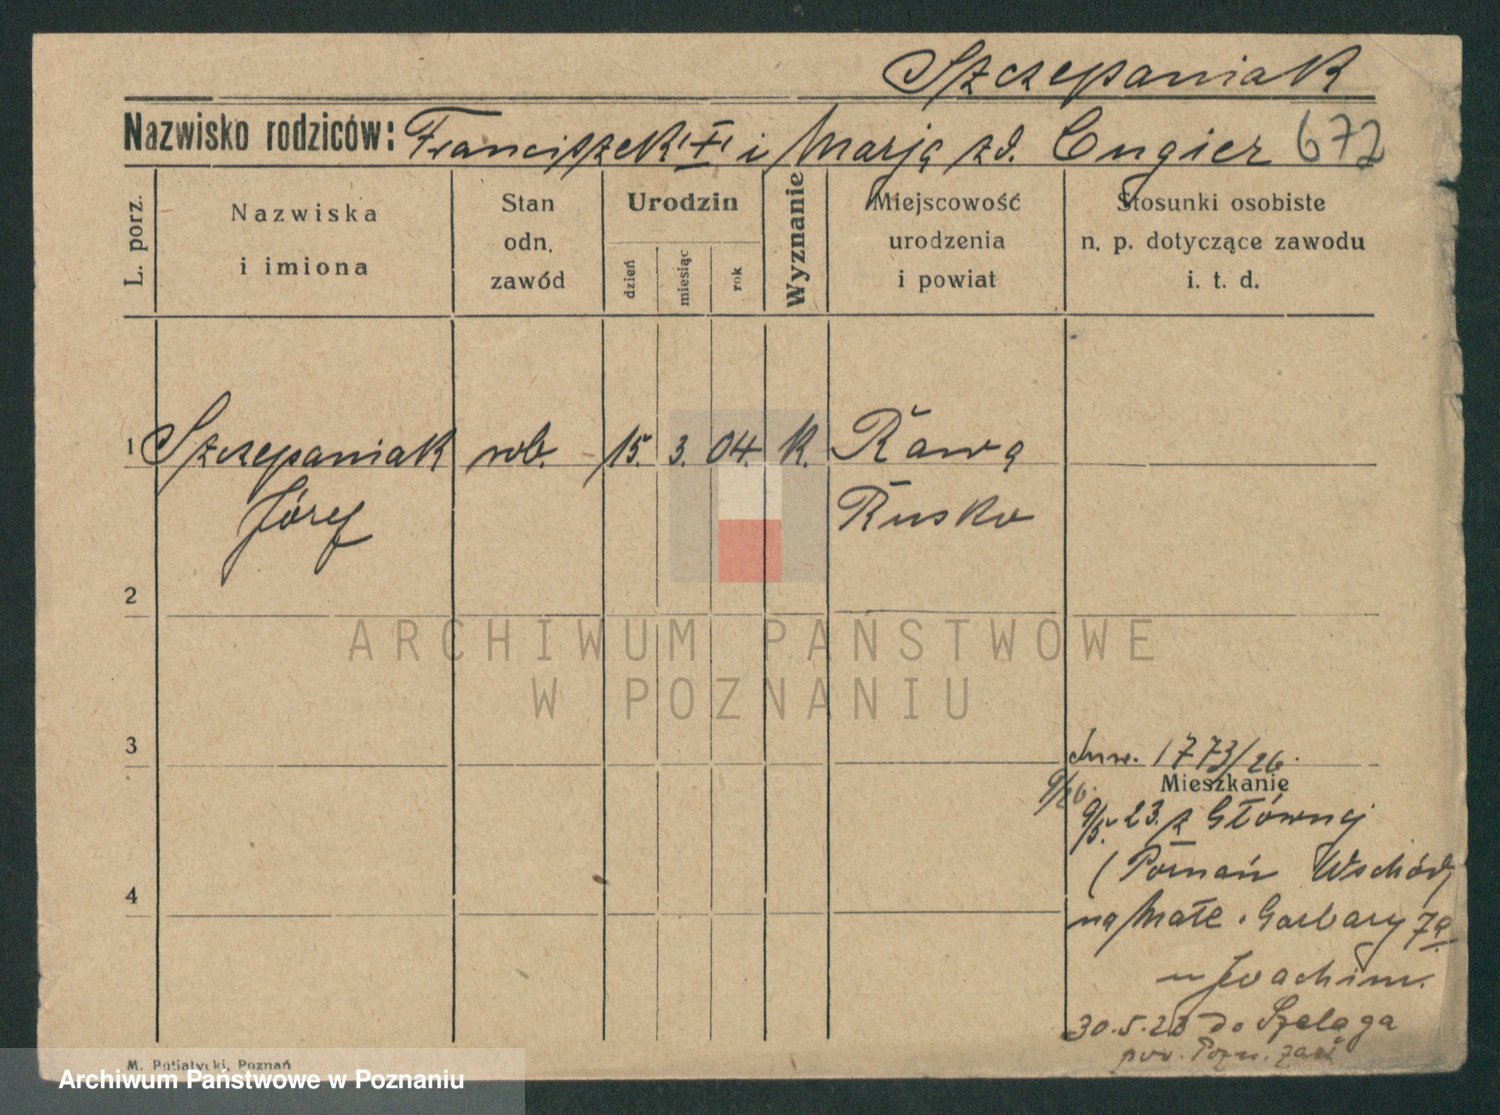 Szczepaniak
Nazwisko rodziców: Franciszek "I" i Marja zd. Cugier 672
L. porz.
Nazwiska
i imiona
Stan
odn.
zawód
Urodzin
dzień
miesiąc
rok
Wyznanie
Miejscowość
urodzenia
i powiat
Stosunki osobiste
n. p. dotyczące zawodu
i. t. d.
1 Szczepaniak rob. 15. 3. 04. K. Rawa
Józef Rusko
2
3
Inw. 1773/26.
Mieszkanie
9/5. 23. z Głównej
(Poznań Wschód)
na Małe Garbary 7a
u Joachim.
4
30.5.23 do Szeląga
pow. Pozn. zach
M. Putiatycki, Poznań
ARCHIWUM PAŃSTWOWE
W POZNANIU
Archiwum Państwowe w Poznaniu